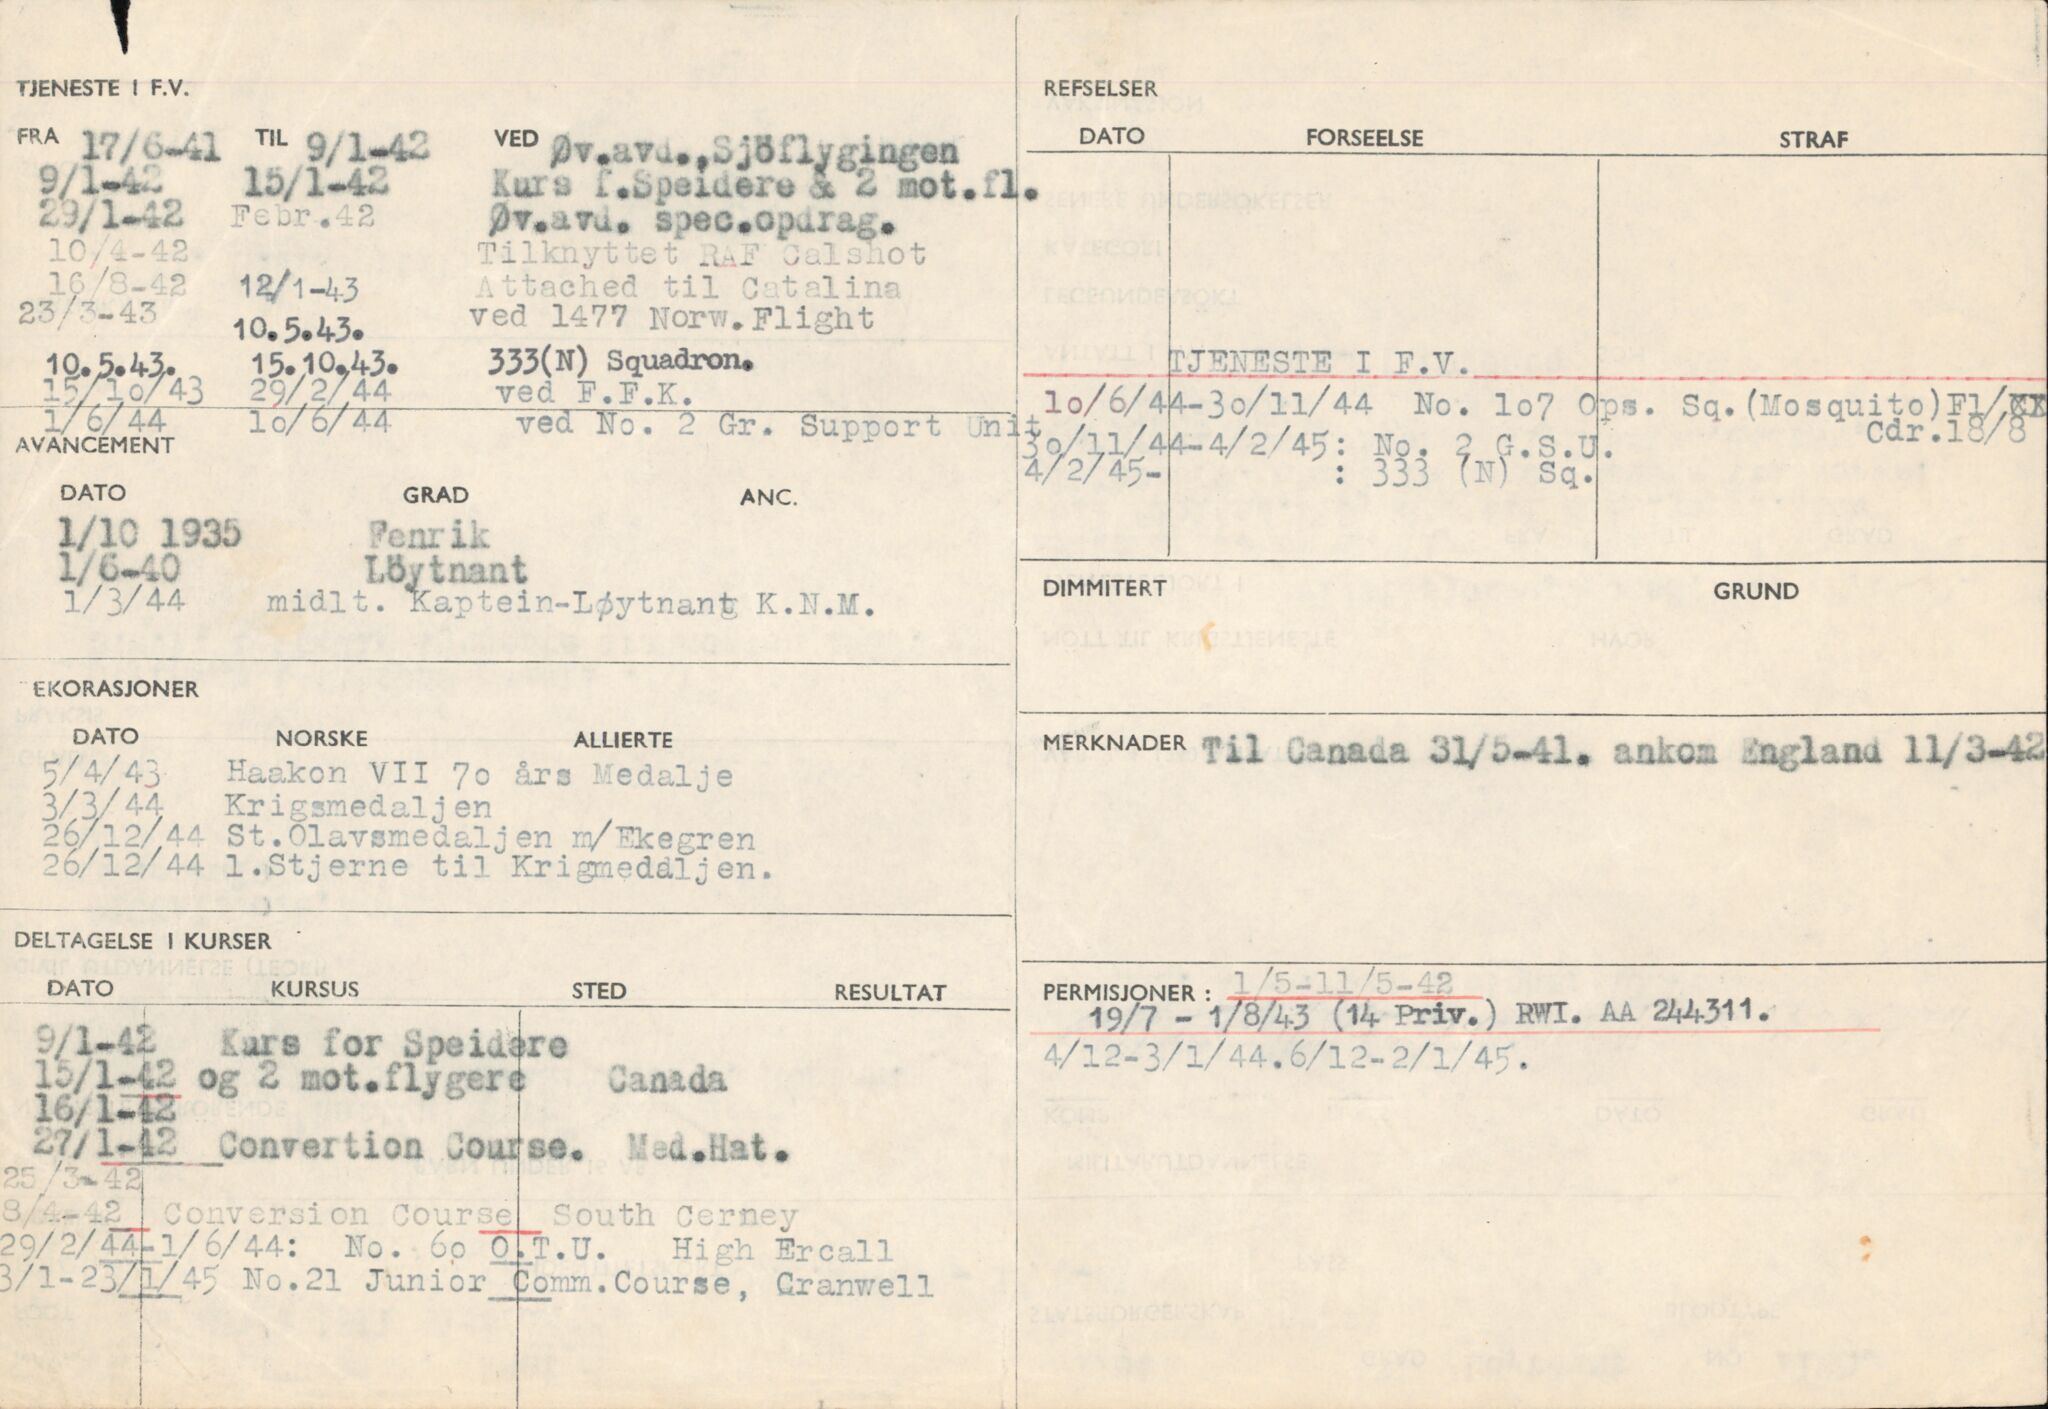 TJENESTE I F.V.
FRA 17/6-41 TIL 9/1-42 VED Øv.avd.,Sjöflygingen
9/1-42 15/1-42 Kurs f.Speidere & 2 mot.fl.
29/1-42 Febr.42 Øv.avd. spec.opdrag.
10/4-42 Tilknyttet RAF Calshot
16/8-42 12/1-43 Attached til Catalina
23/3-43 10.5.43. ved 1477 Norw.Flight
10.5.43. 15.10.43. 333(N) Squadron.
15/10/43 29/2/44 ved F.F.K.
1/6/44 10/6/44 ved No. 2 Gr. Support Unit
AVANCEMENT
DATO GRAD ANC.
1/10 1935 Fenrik
1/6-40 Löytnant
1/3/44 midlt. Kaptein-Løytnant K.N.M.
EKORASJONER
DATO NORSKE ALLIERTE
5/4/43 Haakon VII 7o års Medalje
3/3/44 Krigsmedaljen
26/12/44 St.Olavsmedaljen m/Ekegren
26/12/44 1.Stjerne til Krigmedaljen.
DELTAGELSE I KURSER
DATO KURSUS STED RESULTAT
9/1-42 Kurs for Speidere
15/1-42 og 2 mot.flygere Canada
16/1-42
27/1-42 Convertion Course. Med.Hat.
25/3-42
8/4-42 Conversion Course South Cerney
29/2/44-1/6/44: No. 6o O.T.U. High Ercall
3/1-23/1/45 No.21 Junior Comm.Course, Cranwell
REFSELSER
DATO FORSEELSE STRAF
TJENESTE I F.V.
1o/6/44-3o/11/44 No. 1o7 Ops. Sq.(Mosquito)Fl/XX
Cdr.18/8
3o/11/44-4/2/45: No. 2 G.S.U.
4/2/45- : 333 (N) Sq.
DIMMITERT GRUND
MERKNADER Til Canada 31/5-41. ankom England 11/3-42
PERMISJONER: 1/5-11/5-42
19/7 - 1/8/43 (14 Priv.) RWI. AA 244311.
4/12-3/1/44.6/12-2/1/45.